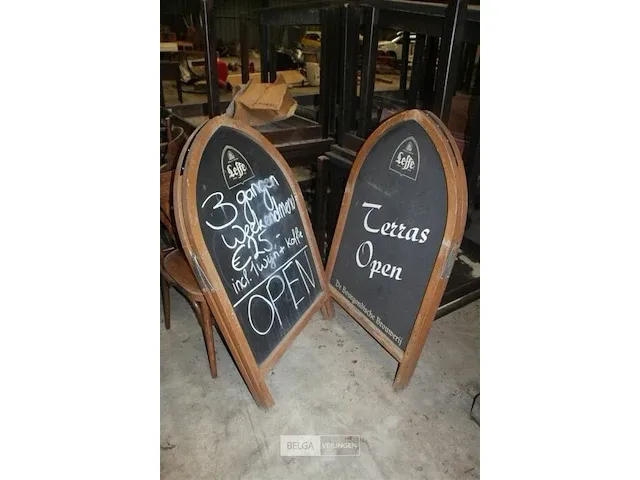 Leffe
3 gangen
weekendmenu
€25,-
incl. 1 wijn + koffie
OPEN
Leffe
Terras
Open
De Bourgondische Brouwerij
BELGA VEILINGEN